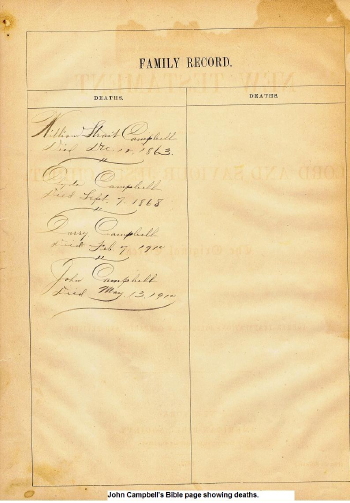 FAMILY RECORD.
DEATHS.
DEATHS.
William Strait Campbell
Died Dec. 1863.
Clyde Campbell
Died Sept. 9 1868
Harry Campbell
Died Feb. 7,
John Campbell
Died May, 13,
John Campbell's Bible page showing deaths.